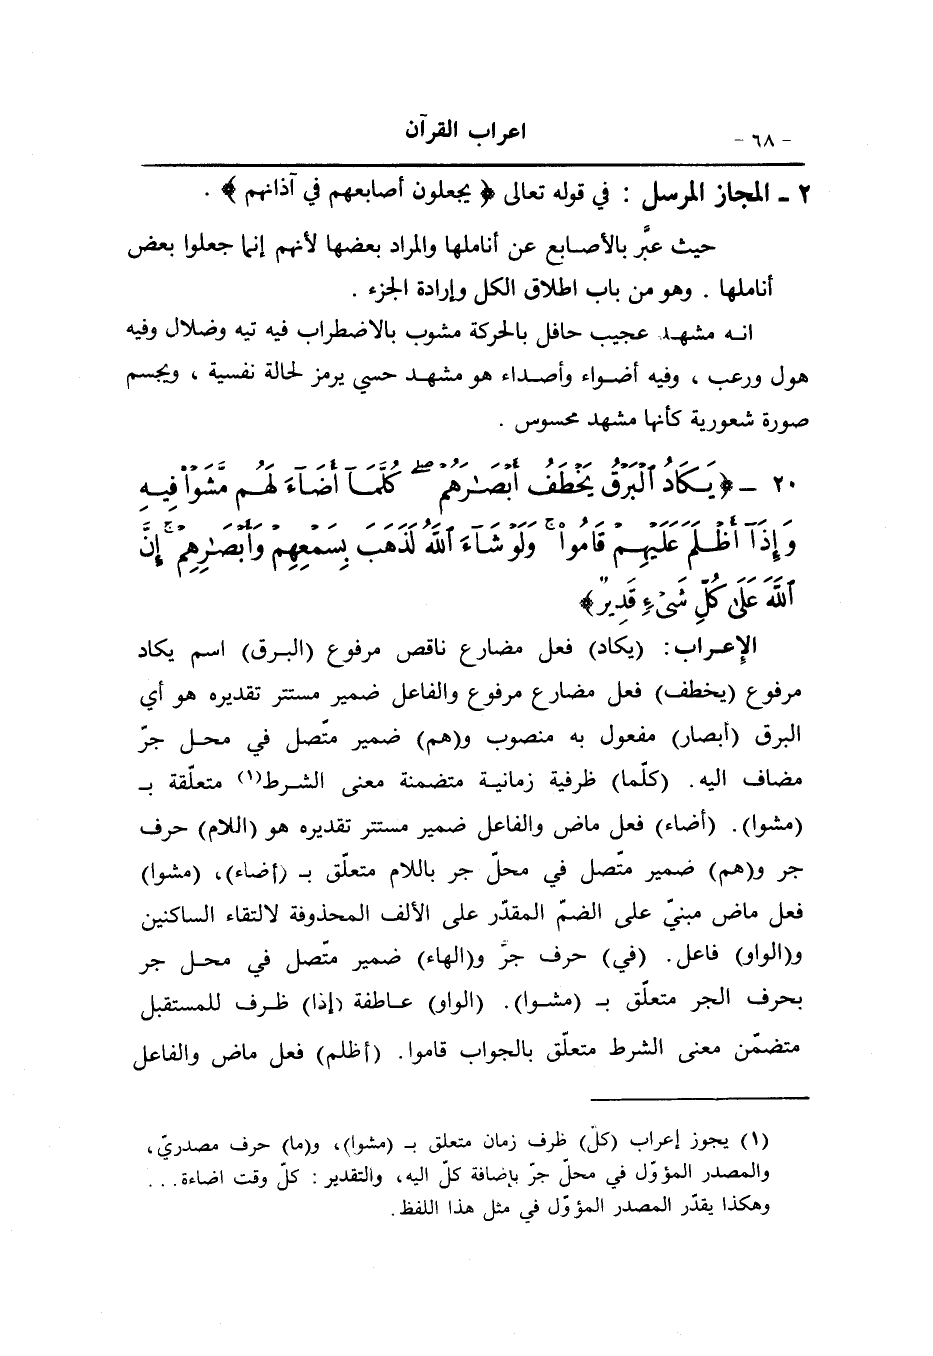 اعراب القرآن
- ٦٨ -
٢ - المجاز المرسل : في قوله تعالى ﴿ يجعلون أصابعهم في آذانهم ﴾ .
حيث عبَّر بالأصـابع عن أناملها والمراد بعضها لأنهم إنما جعلوا بعض
أناملها . وهو من باب اطلاق الكل وإرادة الجزء .
انـه مشهـد عجيب حافل بالحركة مشوب بالاضطراب فيه تيه وضلال وفيه
هول ورعب ، وفيه أضـواء وأصـداء هو مشهـد حسي يرمز لحالة نفسية ، ويجسم
صورة شعورية كأنها مشهد محسوس .
٢٠ - ﴿ يَكَادُ ٱلْبَرْقُ يَخْطَفُ أَبْصَـٰرَهُمْ ۖ كُلَّمَآ أَضَآءَ لَهُم مَّشَوْا۟ فِيهِ
وَإِذَآ أَظْلَمَ عَلَيْهِمْ قَامُوا۟ ۚ وَلَوْ شَآءَ ٱللَّهُ لَذَهَبَ بِسَمْعِهِمْ وَأَبْصَـٰرِهِمْ ۚ إِنَّ
ٱللَّهَ عَلَىٰ كُلِّ شَىْءٍ قَدِيرٌ ﴾
الإعـراب: (يكاد) فعل مضارع ناقص مرفوع (البـرق) اسم يكاد
مرفوع (يخطف) فعل مضارع مرفوع والفاعل ضمير مستتر تقديره هو أي
البرق (أبصار) مفعول به منصوب و(هم) ضمير متّصل في محـل جرّ
مضاف اليه. (كلّما) ظرفية زمانيـة متضمنة معنى الشـرط(١) متعلّقة بـ
(مشوا). (أضاء) فعل ماض والفاعل ضمير مستتر تقديره هو (اللام) حرف
جر و(هم) ضمير متّصل في محلّ جر باللام متعلّق بـ (أضاء)، (مشوا)
فعل ماض مبنيّ على الضمّ المقدّر على الألف المحذوفة لالتقاء الساكنين
و(الواو) فاعل. (في) حرف جرّ و(الهاء) ضمير متّصل في محـل جر
بحرف الجر متعلّق بـ (مشـوا). (الواو) عـاطفة (إذا) ظـرف للمستقبل
متضمّن معنى الشرط متعلّق بالجواب قاموا. (أظلم) فعل ماض والفاعل
(١) يجوز إعراب (كلّ) ظرف زمان متعلق بـ (مشوا)، و(ما) حرف مصدريّ،
والمصدر المؤوّل في محلّ جرّ بإضافة كلّ اليه، والتقدير : كلّ وقت اضاءة...
وهكذا يقدّر المصدر المؤوّل في مثل هذا اللفظ.